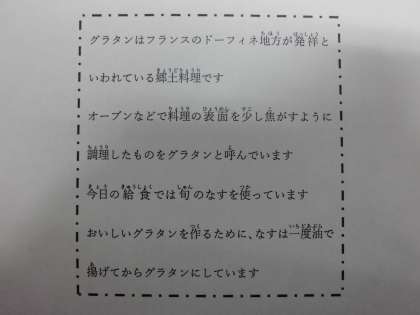 グラタンはフランスのドーフィネ地方が発祥と
いわれている郷土料理です
オーブンなどで料理の表面を少し焦がすように
調理したものをグラタンと呼んでいます
今日の給食では旬のなすを使っています
おいしいグラタンを作るために、なすは一度油で
揚げてからグラタンにしています